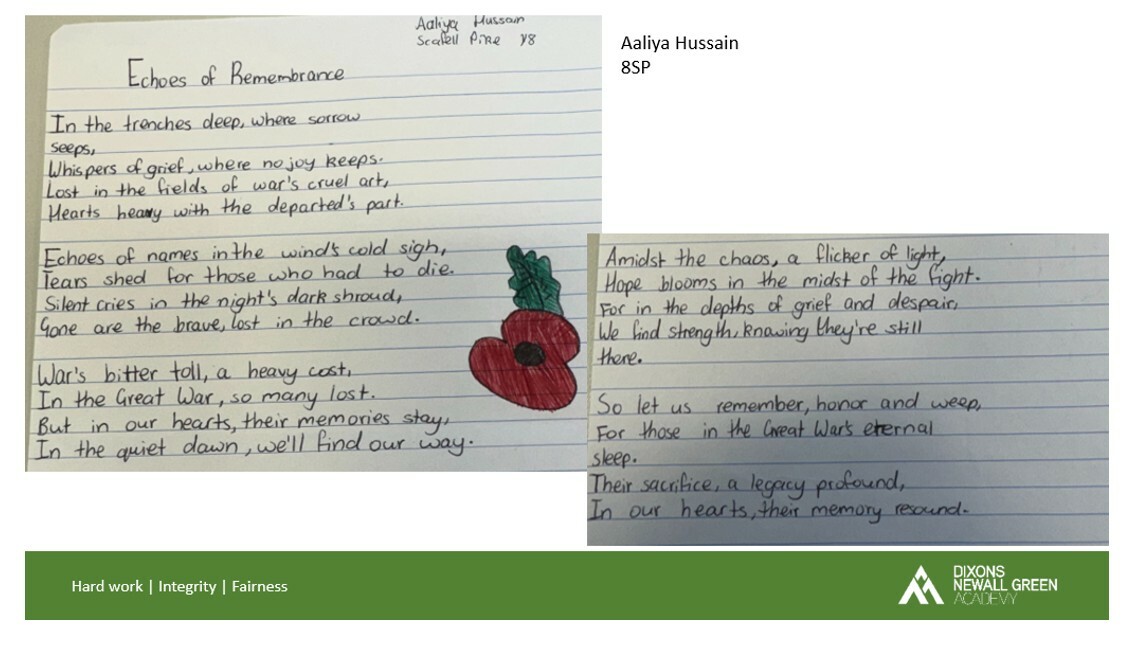 Aaliya Hussain
Scafell Pike Y8
Echoes of Remembrance
In the trenches deep, where sorrow
seeps,
Whispers of grief, where no joy keeps.
Lost in the fields of war's cruel art,
Hearts heavy with the departed's part.
Echoes of names in the wind's cold sigh,
Tears shed for those who had to die.
Silent cries in the night's dark shroud,
Gone are the brave, lost in the crowd.
War's bitter toll, a heavy cost,
In the Great War, so many lost.
But in our hearts, their memories stay,
In the quiet dawn, we'll find our way.
Aaliya Hussain
8SP
Amidst the chaos, a flicker of light,
Hope blooms in the midst of the fight.
For in the depths of grief and despair,
We find strength, knowing they're still
there.
So let us remember, honor and weep,
For those in the Great War's eternal
sleep.
Their sacrifice, a legacy profound,
In our hearts, their memory resound.
Hard work | Integrity | Fairness
DIXONS
NEWALL GREEN
ACADEMY